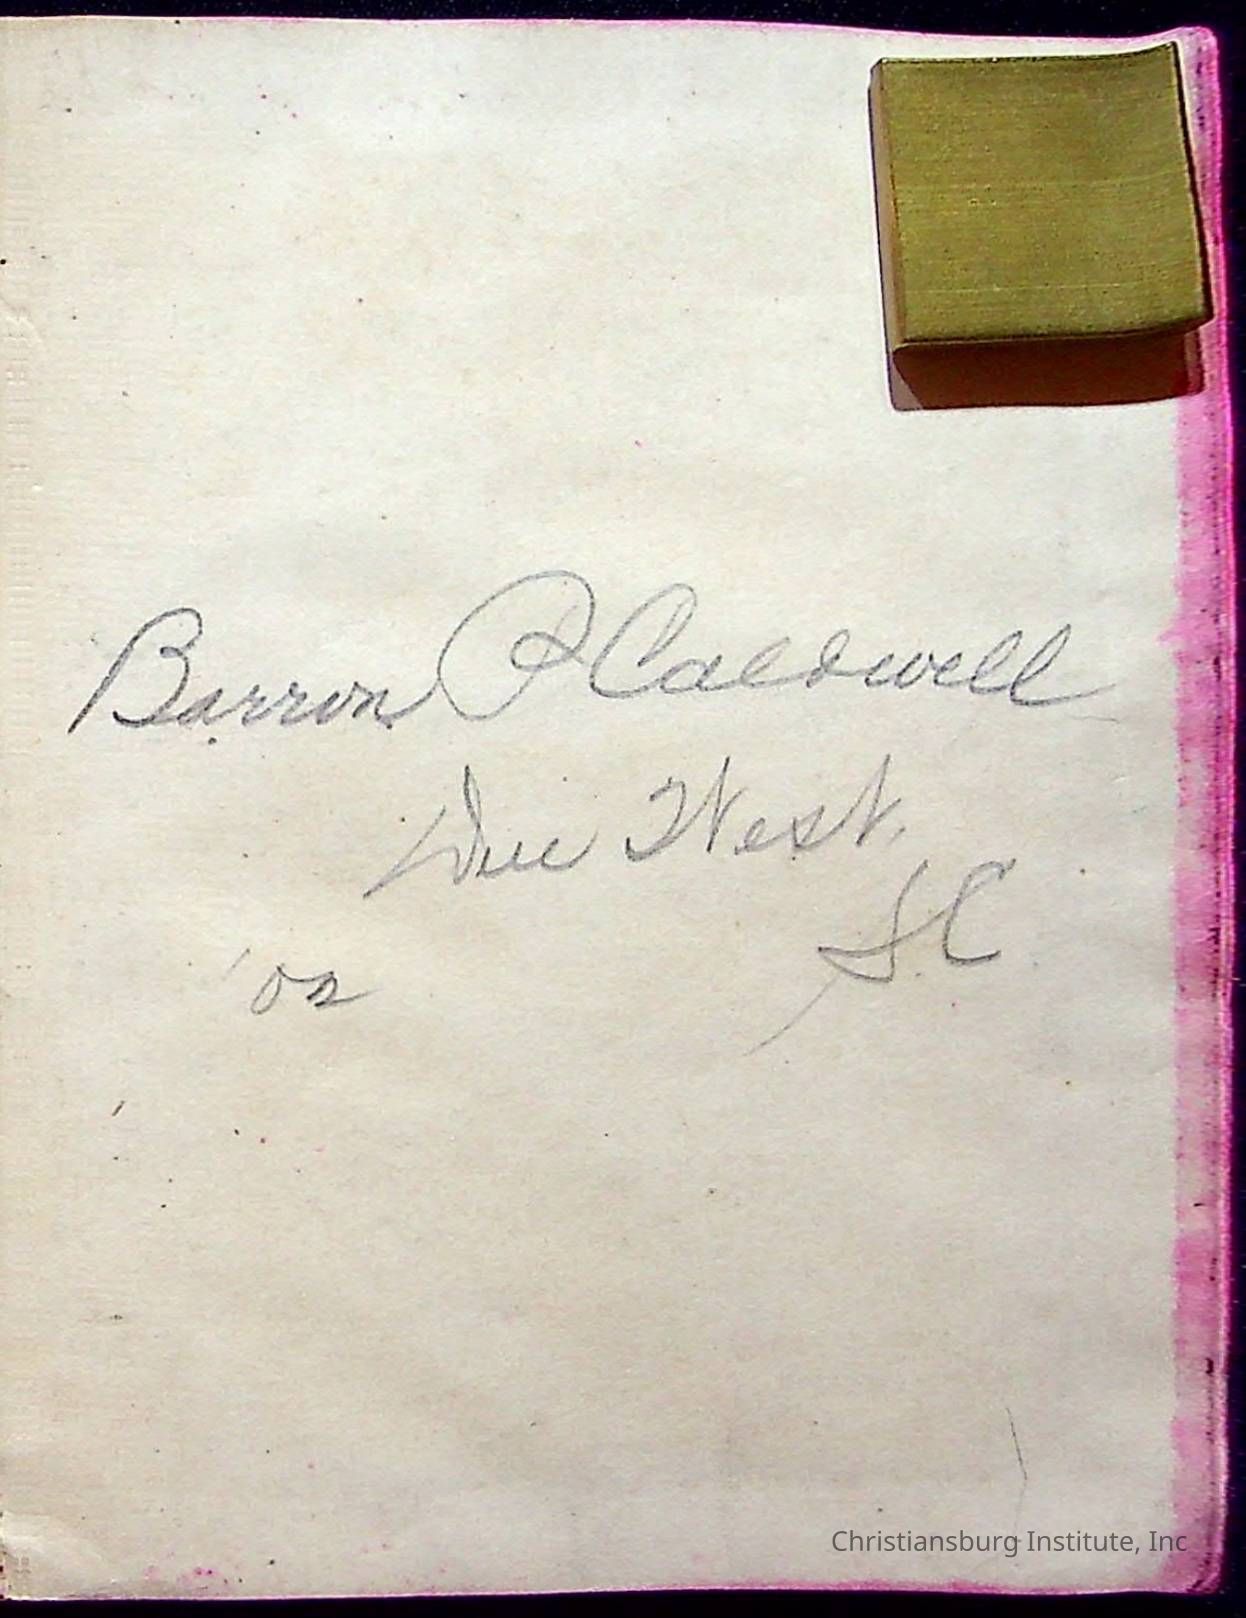 Barron P Caldwell
Due West,
S.C
'02
Christiansburg Institute, Inc